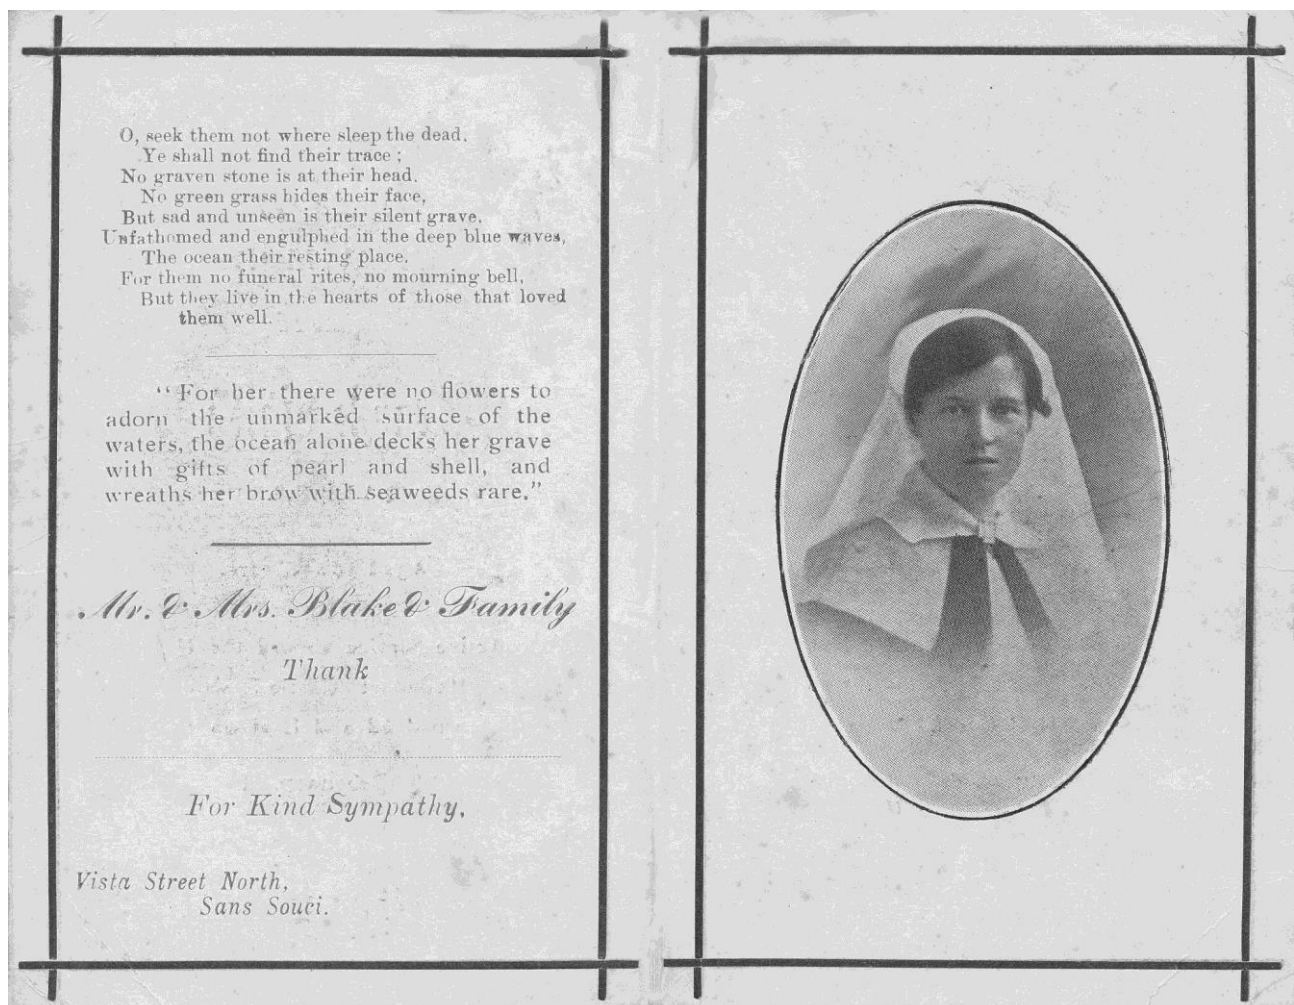 O, seek them not where sleep the dead.
Ye shall not find their trace ;
No graven stone is at their head.
No green grass hides their face,
But sad and unseen is their silent grave.
Unfathomed and engulphed in the deep blue waves,
The ocean their resting place.
For them no funeral rites, no mourning bell,
But they live in the hearts of those that loved
them well.
“ For her there were no flowers to
adorn the unmarked surface of the
waters, the ocean alone decks her grave
with gifts of pearl and shell, and
wreaths her brow with seaweeds rare.”
Mr. & Mrs. Blake & Family
Thank
For Kind Sympathy.
Vista Street North,
Sans Souci.